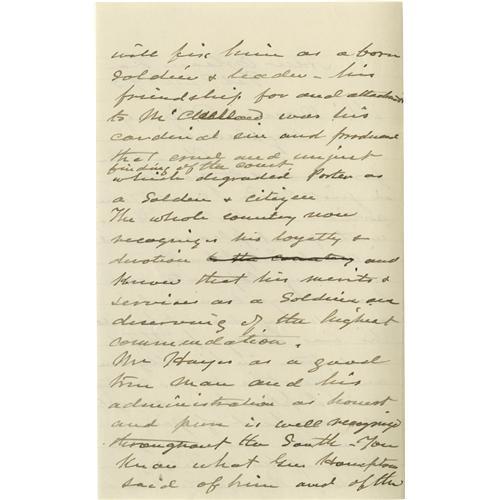 will fix him as a born
Soldier & leader - his
friendship for and attachmt
to McClelland was his
cardinal sin and produced
that cruel and unjust
finding of the court
which degraded Porter as
a Soldier & citizen
The whole country now
recognizes his loyalty &
devotion to the country and
know that his merits &
services as a Soldier are
deserving of the highest
commendation.
Mr Hayes as a good
true man and his
administration as honest
and pure is well recognized
throughout the South - You
know what Gen Hampton
said of him and of the